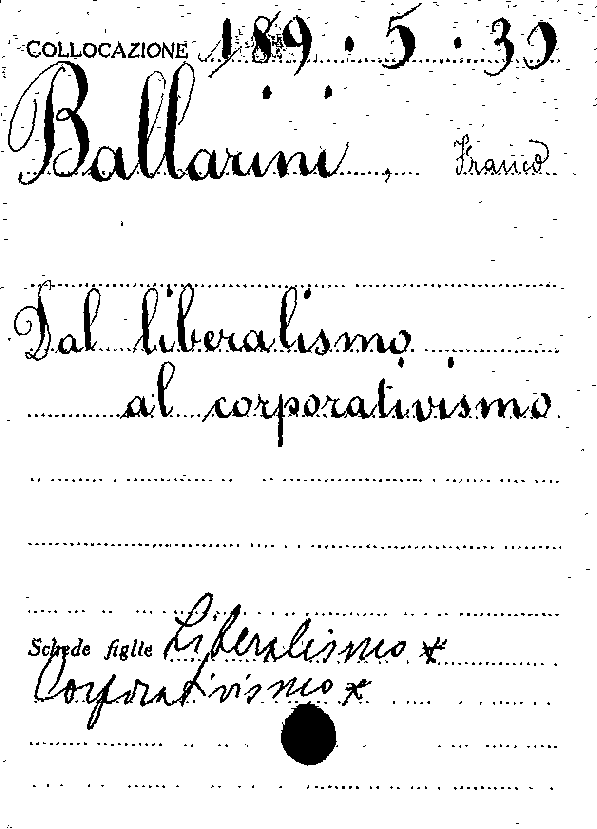 COLLOCAZIONE 189.5.39
Ballarini, Franco
Dal liberalismo
al corporativismo
Schede figlie Liberalismo *
Corporativismo *